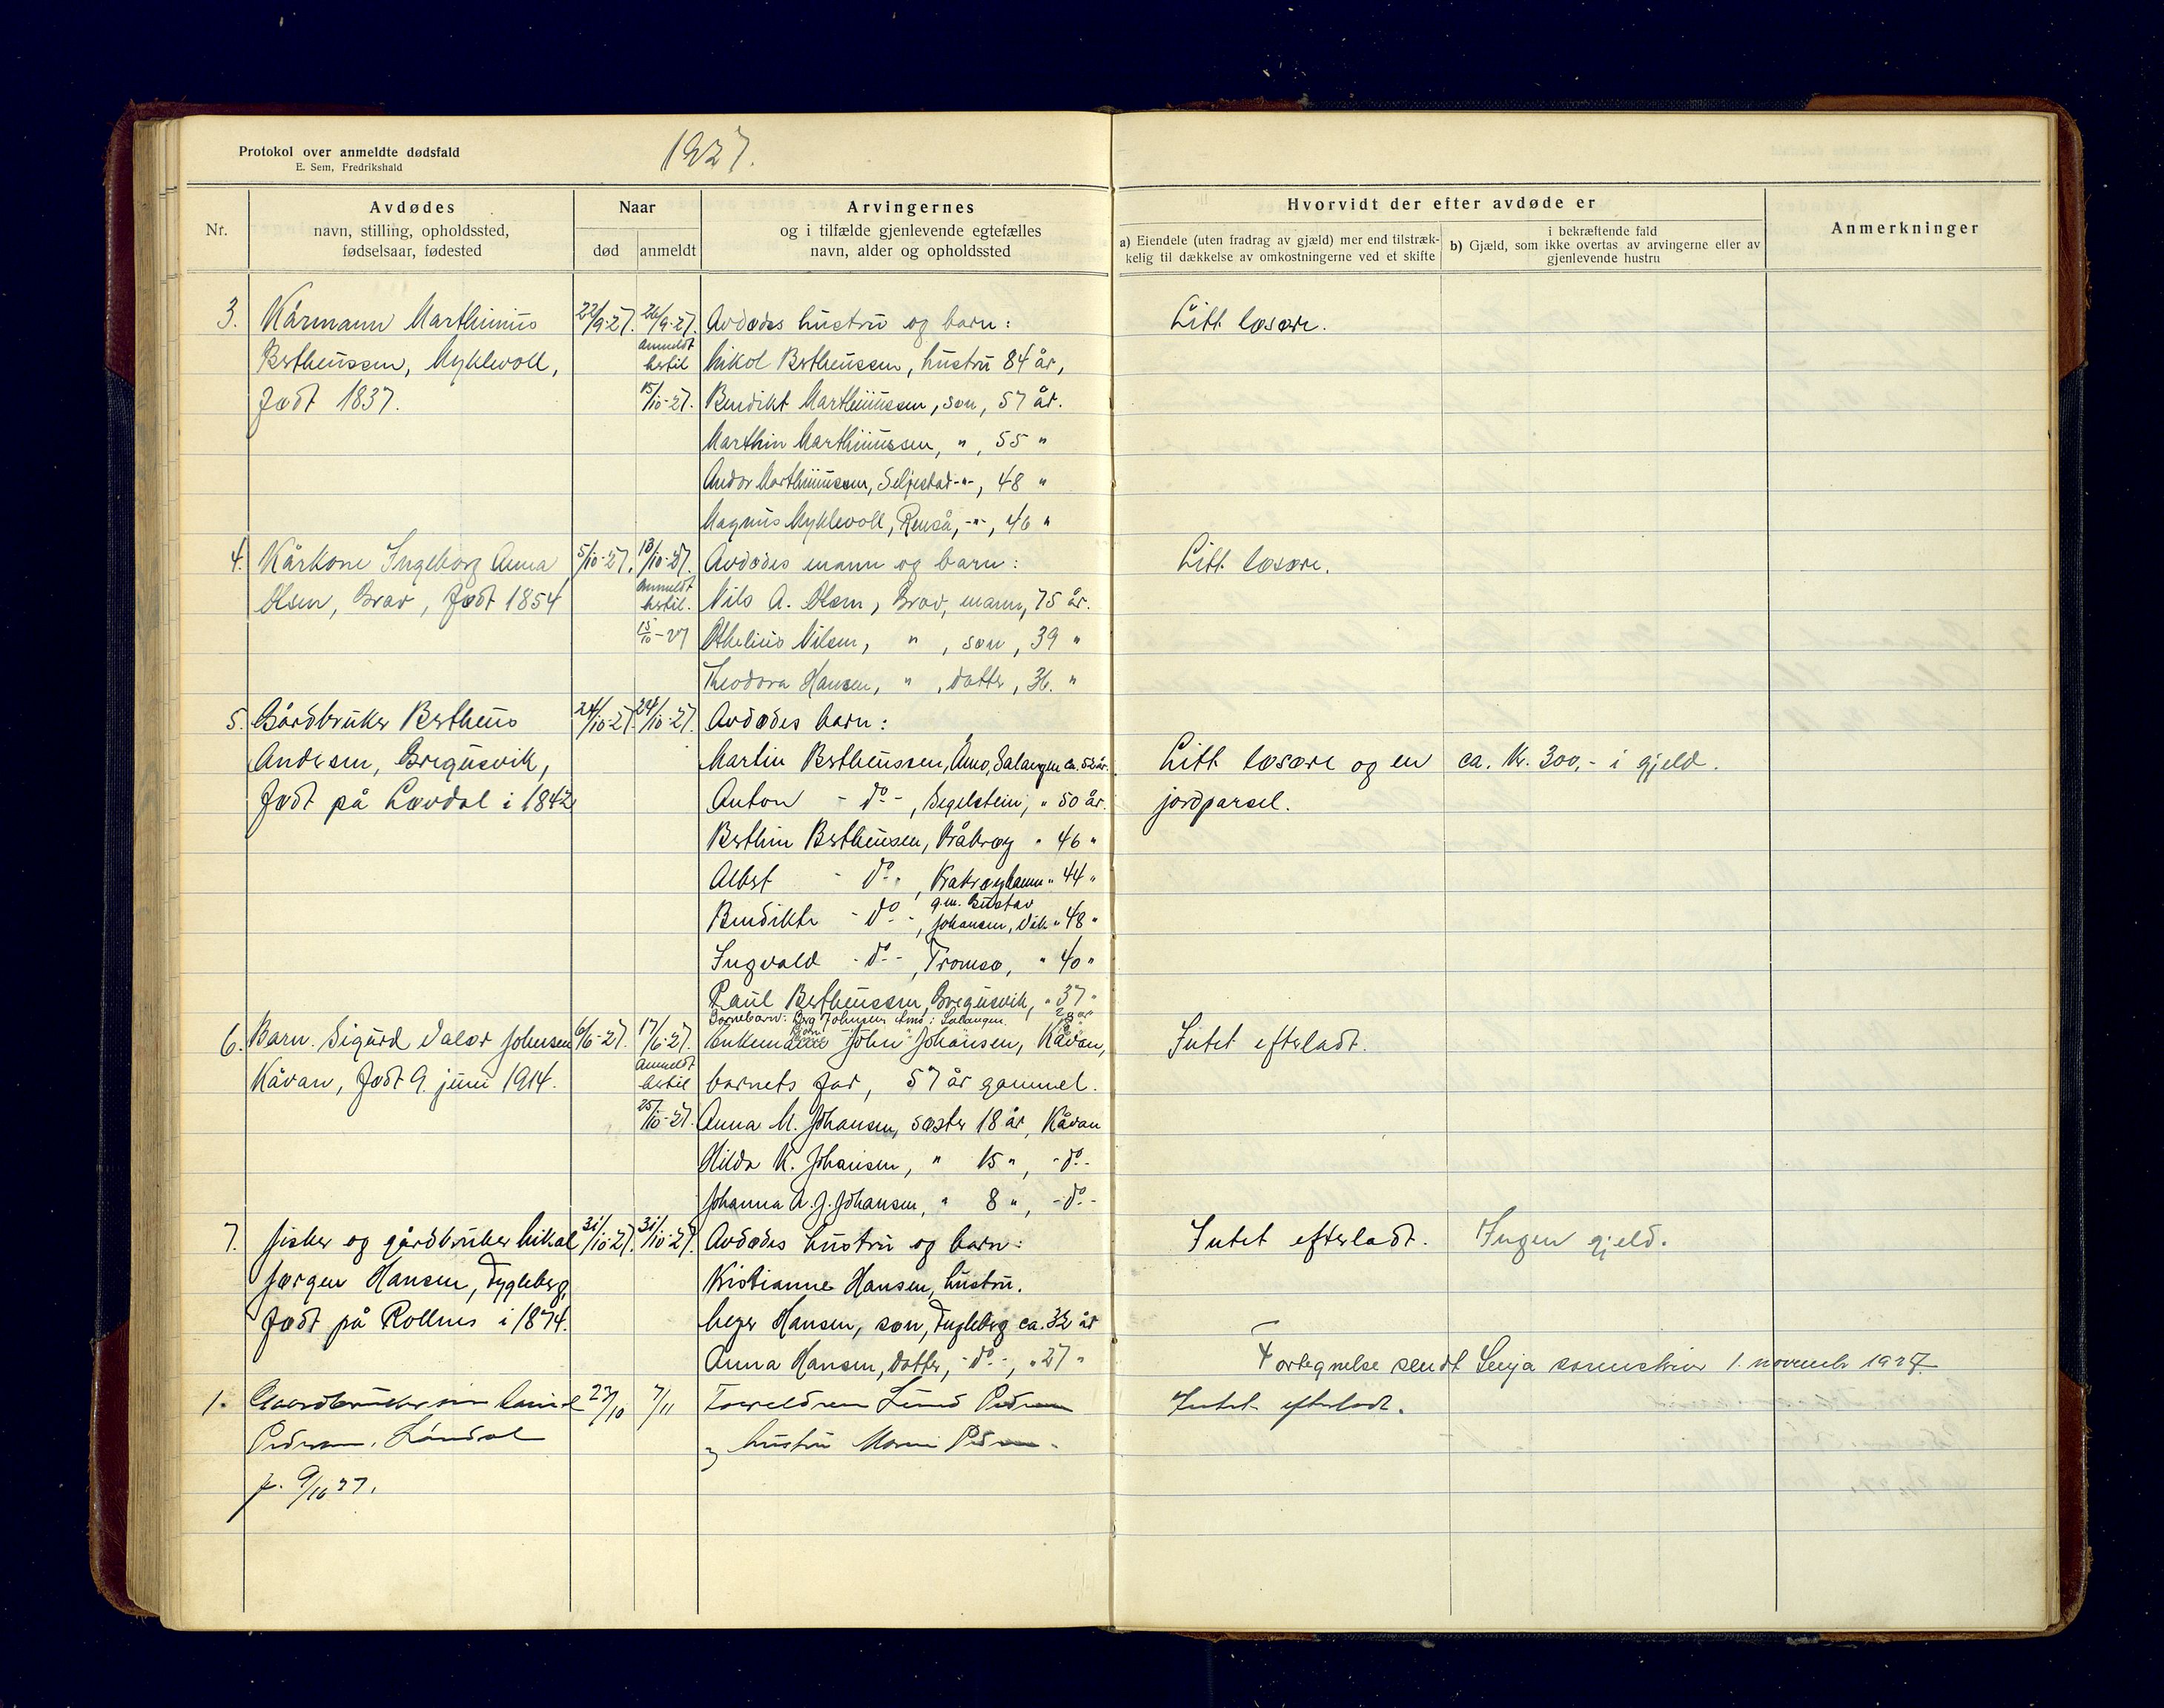 Protokol over anmeldte dødsfald
E. Sem, Fredrikshald
1927.
Nr.
Avdødes
navn, stilling, opholdssted,
fødselsaar, fødested
Naar
død anmeldt
Arvingernes
og i tilfælde gjenlevende egtefælles
navn, alder og opholdssted
Hvorvidt der efter avdøde er
a) Eiendele (uten fradrag av gjæld) mer end tilstræk-
kelig til dækkelse av omkostningerne ved et skifte
i bekræftende fald
b) Gjæld, som ikke overtas av arvingerne eller av
gjenlevende hustru
Anmerkninger
3. Kårmann Marthinus 22/9-27. 26/9-27. Avdødes hustru og barn: Litt løsøre.
Bertheussen, Myklevoll, anmeldt hertil Nikol Bertheussen, hustru 84 år,
født 1837. 15/10-27. Bendikt Marthinussen, søn, 57 år.
Marthin Marthinussen, " , 55 "
Andor Marthinussen, Seljestad -"-, 48 "
Magnus Myklevoll, Renså, -"-, 46 "
4. Kårkone Ingeborg Anna 5/10-27. 13/10-27. Avdødes mann og barn: Litt løsøre.
Olsen, Brav, født 1854 anmeldt hertil. Nils A. Olsen, Brav, mann, 75 år.
15/10-27 Othelius Nilsen, " , søn, 39 "
Theodora Hansen, " , datter, 36. "
5. Gårdbruker Bertheus 24/10-27. 24/10-27. Avdødes barn:
Andersen, Gregusvik, Martin Bertheussen, Åmo, Salangen ca. 52 år. Litt løsøre og en ca. kr. 300,- i gjeld.
født på Løvdal i 1842 Anton - do -, Segelstein, " 50 år. jordparsel.
Berthin Bertheussen, Kråkrøy " 46 "
Albert - do -, Krakrøyhamn " 44 "
Bendikte - do -, g.m. Gustav
Johansen, Vik " 48 "
Ingvald - do -, Tromsø, " 40 "
Paul Bertheussen, Gregusvik, " 37 "
Barnebarn: Johnsen Åmo i Salangen
6. Barn Sigurd Valør Johansen 6/6-27. 17/6-27. Enkemann John Johansen, Kåvan, Intet efterladt.
Kåvan, født 9. juni 1914. anmeldt hertil barnets far, 57 år gammel.
25/10-27. Anna M. Johansen, søster 18 år, Kåvan
Hilda K. Johansen, " 15 ", - do -
Johanna A. J. Johansen, " 8 ", - do -
7. Fisker og gårdbruker Mikal 31/10-27. 31/10-27. Avdødes hustru og barn: Intet efterladt. Ingen gjeld.
Jørgen Hansen, Fygleberg, Kristianne Hansen, hustru.
født på Rollnes i 1874. Meyer Hansen, søn, Fugleberg ca. 32 år
Anna Hansen, datter, - do -, " 27 " Fortegnelse sendt Senja sorenskriver 1. november 1927
1. Gaardbruker 23/10 7/11 Forældrene Pedersen Intet efterladt.
Pedersen, Løvdal og hustru Pedersen.
f. 9/10 27.